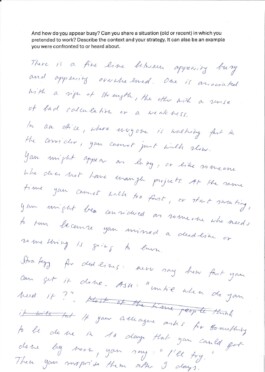 And how do you appear busy? Can you share a situation (old or recent) in which you
pretended to work? Describe the context and your strategy. It can also be an example
you were confronted to or heard about.
There is a fine line between appearing busy
and appearing overwhelmed. One is associated
with a sign of strength, the other with a sense
of bad calculation or a weakness.
In an office, where everyone is walking fast in
the corridor, you cannot just walk slow.
You might appear as lazy, or like someone
who does not have enough projects. At the same
time you cannot walk too fast, or start running,
you might be considered as someone who needs
to run because you missed a deadline or
something is going to burn.
Strategy for deadlines: never say how fast you
can get it done. Ask: "when do you
need it?". Most of the time people think
it will If your colleague asks for something
to be done in 10 days that you could get
done by noon, you say "I'll try"
Then you surprise them after 3 days.